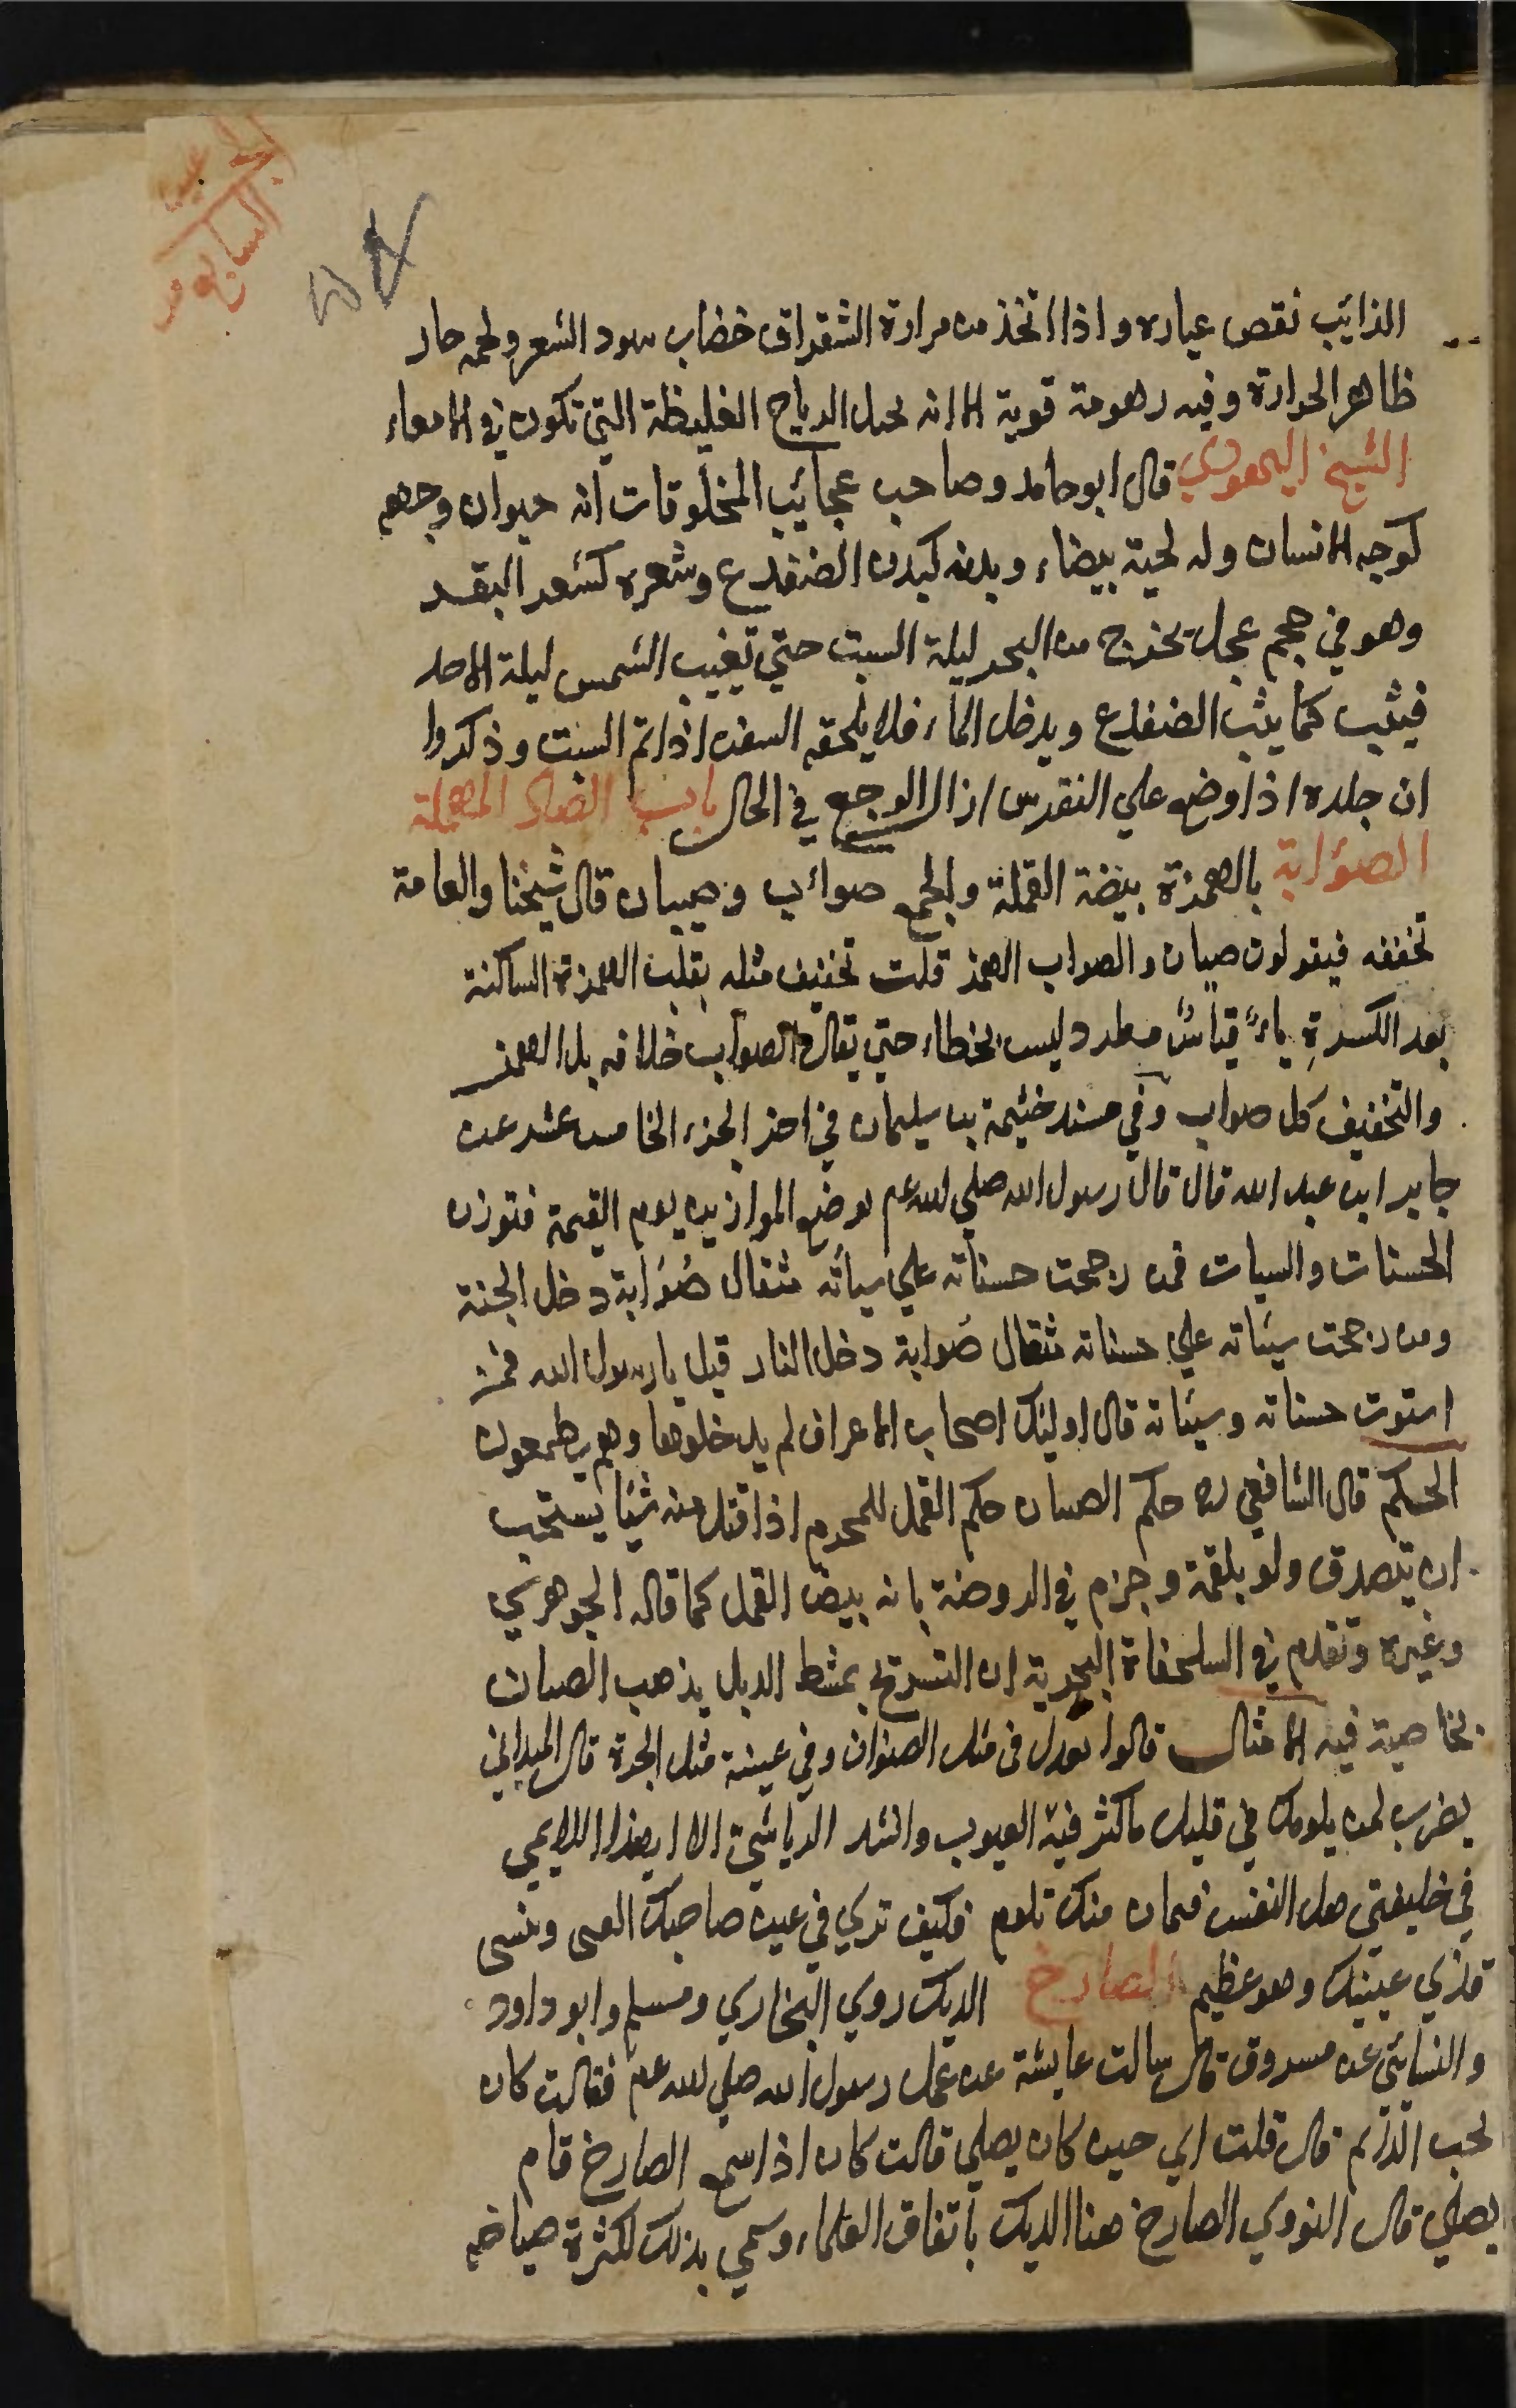 السابع من
الذائب نقص عياره واذا اتخذ من مرارة الشقراق خضاب سود الشعر ولحمه حار
ظاهر الحرارة وفيه زهومة قوية الا انه يحل الرياح الغليظة التي تكون في الامعاء
الشيخ اليهودي قال ابو حامد وصاحب عجائب المخلوقات انه حيوان وجهه
كوجه الانسان وله لحية بيضاء وبدنه كبدن الضفدع وشعره كشعر البقر
وهو في حجم عجل يخرج من البحر ليلة السبت حتي تغيب الشمس ليلة الاحد
فيثب كما يثب الضفدع ويدخل الماء فلا يلحقه السفن اذا تم السبت وذكروا
ان جلده اذا وضع علي النقرس ازال الوجع في الحال باب الصاد المهملة
الصؤابة بالهمزة بيضة القملة والجمع صوائب وصيبان قال شيخنا والعامة
تخففه فيقولون صيبان والصواب الهمز قلت تخفيف مثله بقلب الهمزة الساكنة
بعد الكسرةِ ياءً قياسٌ مطرد وليس بخطاء حتي يقال والصواب خلافه بل الهمز
والتخفيف كل صواب وفي مسند خيثمة بن سليمان في اخر الجزء الخامس عشر عن
جابر ابن عبد الله قال قال رسول الله صلي الله عم يوضع الموازين يوم القيمة فتوزن
الحسنات والسيات فمن رجحت حسناته علي سياته مثقال صُؤابة دخل الجنة
ومن رجحت سيئاته علي حسناته مثقال صُوابة دخل النار قيل يا رسول الله فمن
استوت حسناته وسيئاته قال اوليك اصحاب الاعراف لم يدخلوها وهم يطمعون
الحكم قال الشافعي ره حكم الصيبان حكم القمل للمحرم اذا قتل منه شيئا يستحب
ان يتصدق ولو بلقمة وجزم في الروضة بانه بيض القمل كما قاله الجوهري
وغيره وتقدم في السلحفاة البحرية ان التسريح بمشط الدبل يذهب الصيبان
بخاصية فيه الامثال قالوا يعدل في مثل الصؤاب وفي عينه مثل الجرة قال الميداني
يضرب لمن يلومك في قليل ما كثر فيه العيوب وانشد الرياشي الا ايهذا اللايمي
في خليقتي هل النفس فيما كان منك تلوم فكيف تري في عين صاحبك القذي وتنسي
قذي عينيك وهو عظيم الصارخ الديك روي البخاري ومسلم وابو داود
والنسائي عن مسروق قال سالت عايشة عن عمل رسول الله صلي الله عم فقالت كان
يحب الدائم قال قلت اي حين كان يصلي قالت كان اذا سمع الصارخ قام
يصلي قال النووي الصارخ هنا الديك باتفاق العلماء وسمي بذلك لكثرة صياحه